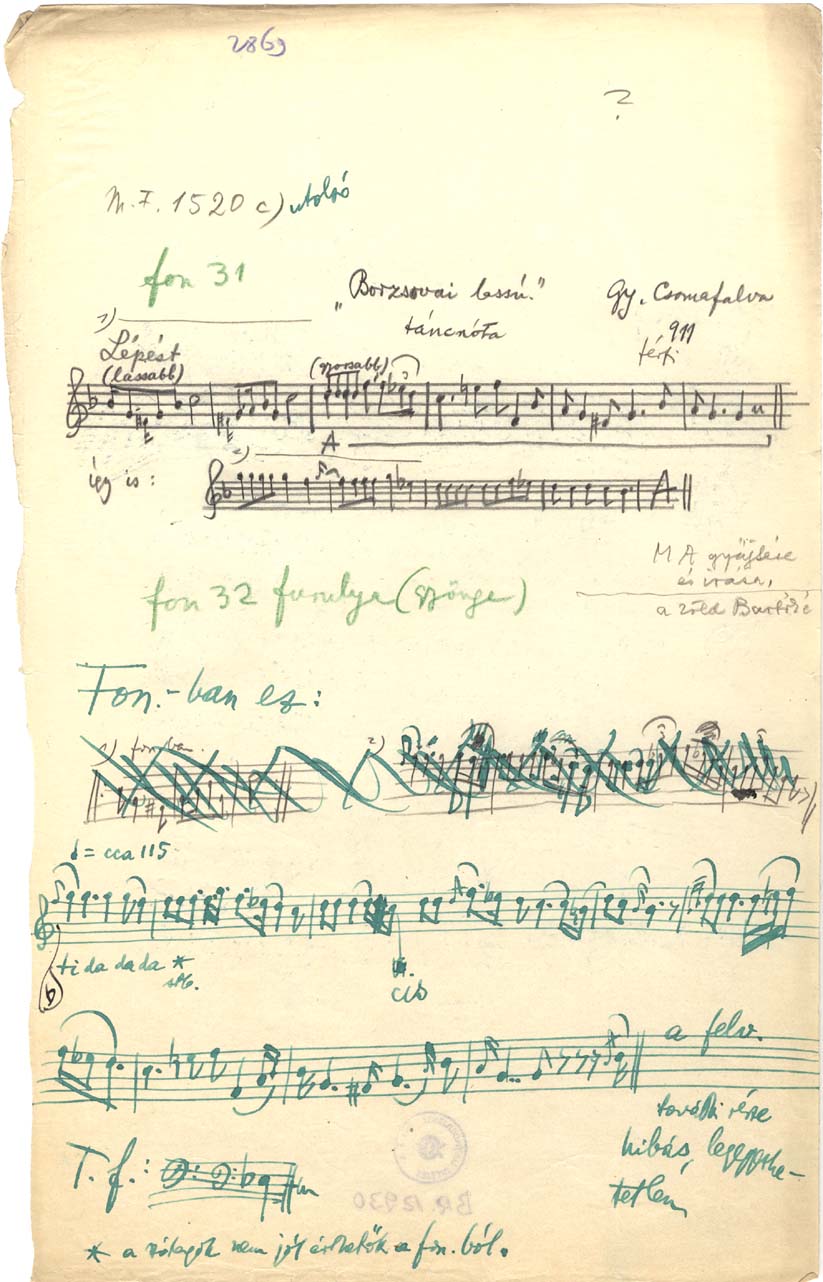 2869
?
M. F. 1520 c) utolsó
fon 31
„Borzsovai lassú.” Gy. Csomafalva
táncnóta 911
1) férfi
Lépést
(lassabb) (gyorsabb)
3
A
így is: 2)
A
M A gyűjtése
és írása,
a zöld Bartóké
fon 32 furulya (
Fon.-ban ez:
1) fonban. 2)
= cca 115
ti da da da *
stb.
cis
a felv.
további része
hibás, lejegyezhe-
tetlen
T. f.:
BR 12930
* a szótagok nem jól érthetők a fon. ból.